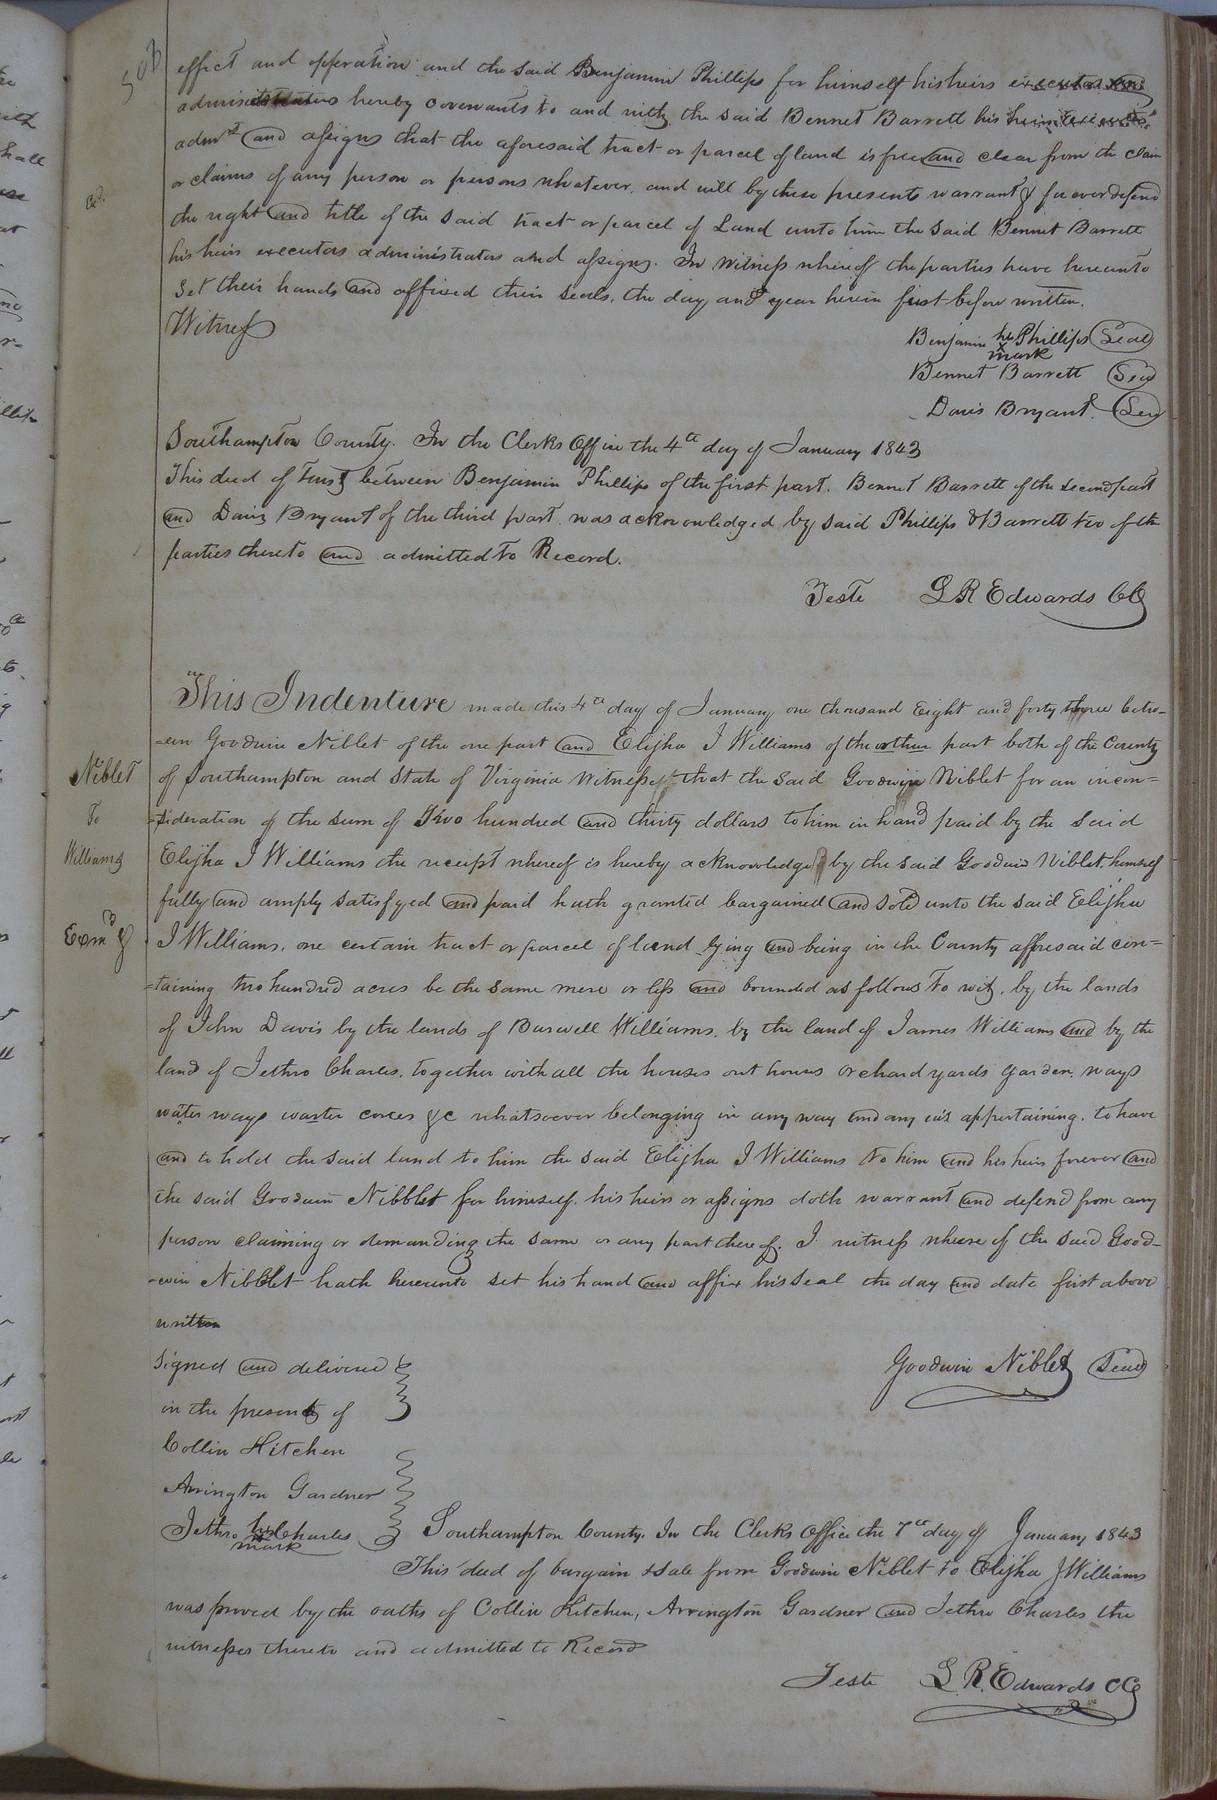 effect and opperation and the said Benjamin Phillips for himself his heirs executors and
administrators hereby covenants to and with the said Bennet Barrett his heirs executors
admrs and assigns that the aforesaid tract or parcel of land is free and clear from the claim
or claims of any person or persons whatever, and will by these presents warrant & forever defend
the right and title of the said tract or parcel of Land unto him the said Bennet Barrett
his heirs executors administrators and assigns. In Witness whereof the parties have hereunto
set their hands and affixed their seals, the day and year herein first before written.
Witness
Benjamin his x mark Phillips (Seal)
Bennet Barrett (Seal)
Davis Bryant (Seal)
Southampton County. In the Clerks Office the 4th day of January 1843
This deed of trust between Benjamin Phillips of the first part. Bennet Barrett of the second part
and Davis Bryant of the third part was acknowledged by said Phillips & Barrett two of the
parties thereto and admitted to Record.
Teste L R Edwards CC
This Indenture made this 4th day of January one thousand Eight and forty three betw-
-een Goodwin Niblet of the one part and Elijha J Williams of the other part both of the County
Niblet
To
Williams
Exmd
of Southampton and State of Virginia Witnesseth that the said Goodwin Niblet for an incon=
=sideration of the sum of Two hundred and thirty dollars to him in hand paid by the said
Elijha J Williams the receipt whereof is hereby acknowledged by the said Goodwin Niblet, himself
fully and amply satisfyed and paid hath granted bargained and sold unto the said Elijha
J Williams, one certain tract or parcel of land lying and being in the County afforesaid con=
=taining two hundred acres be the same more or less and bounded as follows to wit, by the lands
of John Davis by the lands of Burwell Williams, by the land of James Williams and by the
land of Jethro Charles, together with all the houses out houses orchard yards garden, ways
water ways water corces &c whatsoever belonging in any way and any wis appertaining, to have
and to hold the said land to him the said Elijha J Williams to him and his heirs forever and
the said Goodwin Nibblet for himself, his heirs or assigns doth warrant and defend from any
person claiming or demanding the same or any part thereof. I witness whereof the said Good-
-win Nibblet hath hereunto set his hand and affix his seal the day and date first above
written
Signed and delivered
in the present of
Collin Kitchen
Arrington Gardner
Jethro his x mark Charles
Goodwin Niblet (Seal)
Southampton County. In the Clerks Office the 7th day of January 1843
This deed of bargain & sale from Goodwin Niblet to Elijha J Williams
was proved by the oaths of Collin Kitchen, Arrington Gardner and Jethro Charles the
witnesses thereto and admitted to Record
Teste L. R. Edwards CC